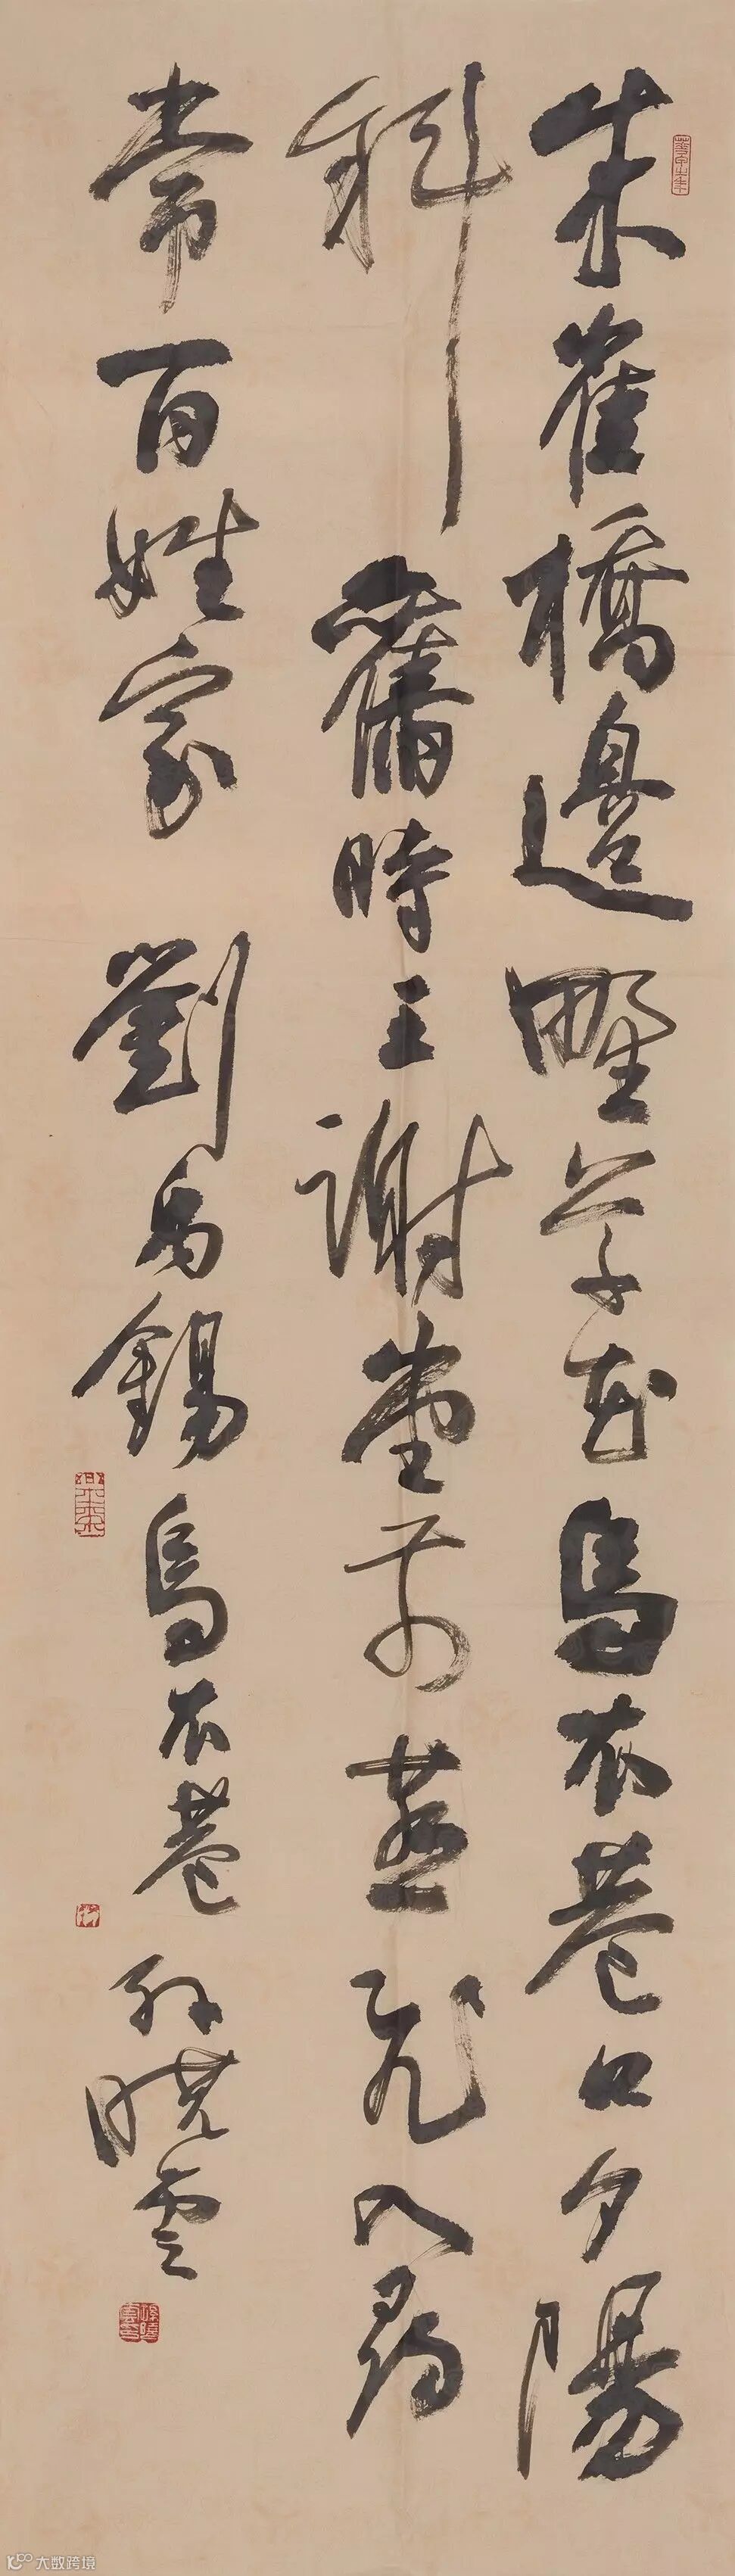 朱雀橋邊野草花烏衣巷口夕陽
斜舊時王謝堂前燕飛入尋
常百姓家 劉禹錫烏衣巷 孫曉雲
大数跨境